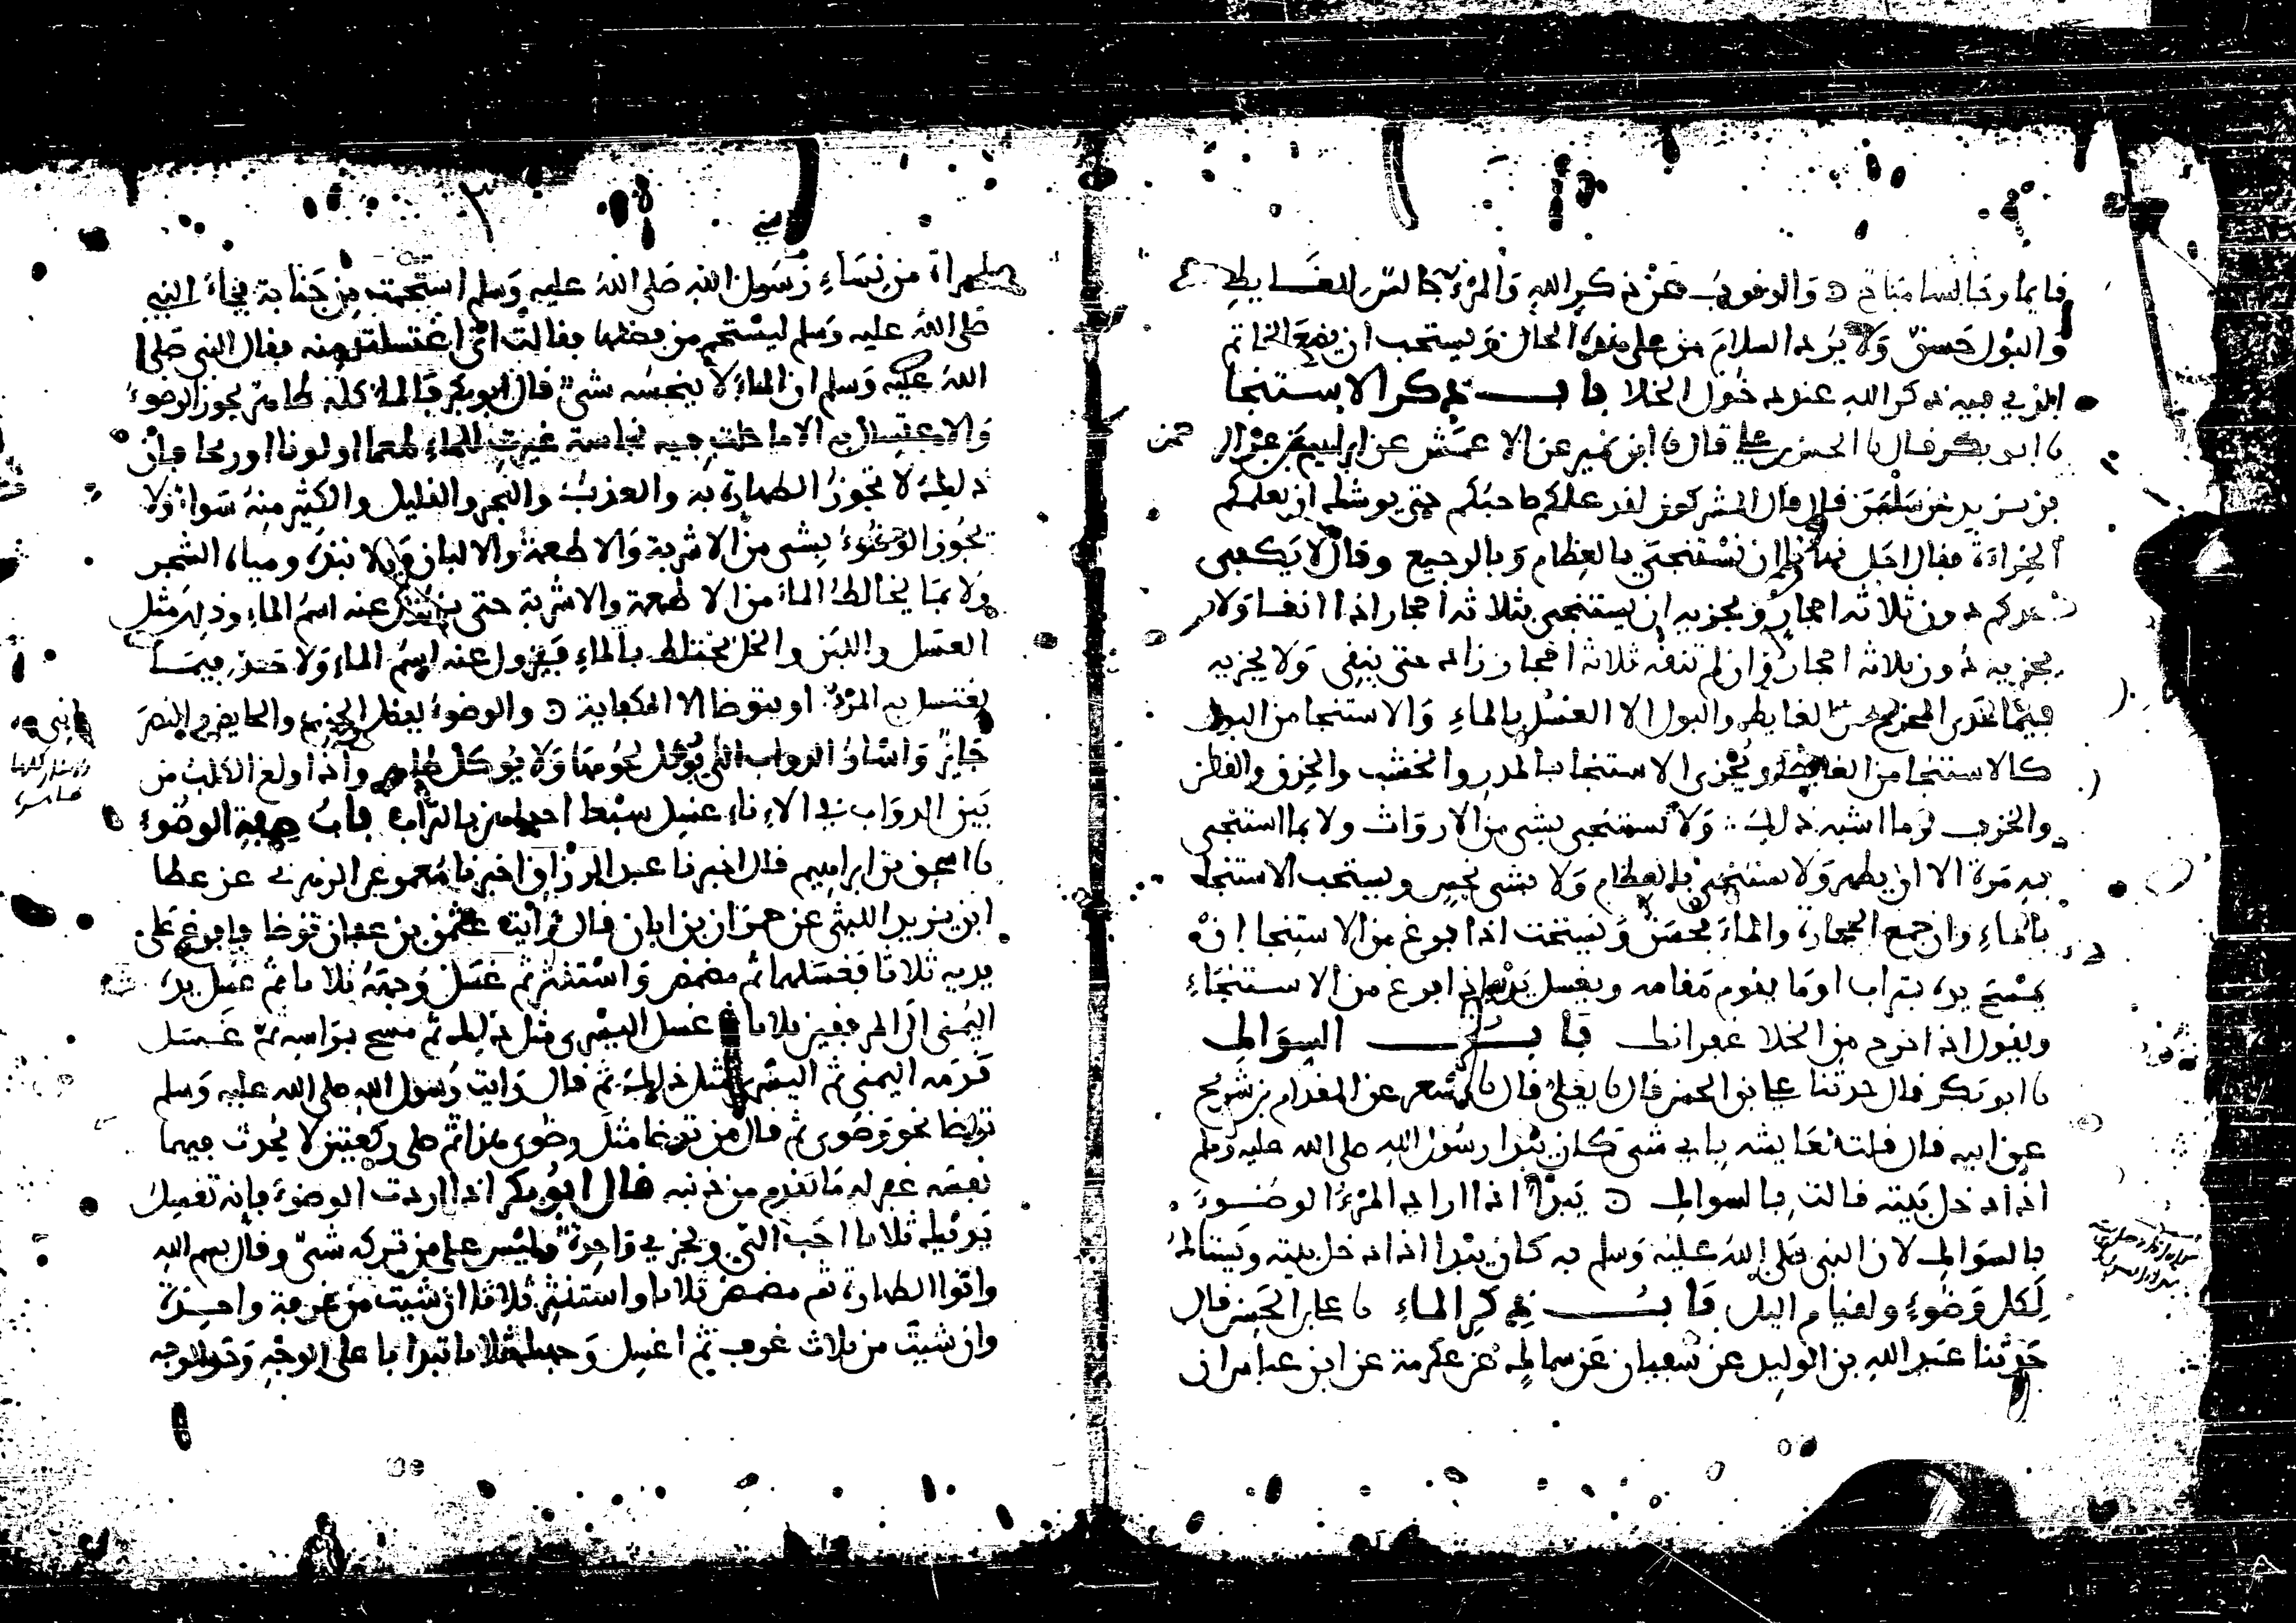 والوقوف عن ذكر الله والمرء جالس للغايط
والبول حسن ولا يرد السلام من على هذه الحال ويستحب ان يضع الخاتم
الذي فيه ذكر الله عند دخول الخلا باب ذكر الاستنجا
نا ابو بكر قال نا الحسن بن علي قال نا ابن نمير عن الاعمش عن ابراهيم عن عبد الرحمن
بن يزيد عن سلمن قال قال المشركون لقد علمكم صاحبكم حتى يوشك ان يعلمكم
الخراءة فقال اجل نهانا ان نستنجي بالعظام وبالرجيع وقال لا يكفي
احدكم دون ثلاثة احجار ويجزيه ان يستنجي بثلاثة احجار اذا انقا ولا
يجزيه دون ثلاثة احجار وان لم تنقه ثلاثة احجار زاد حتى ينقى ولا يجزيه
فيما عدى المخرج من الغايط والبول الا الغسل بالماء والاستنجا من البول
كالاستنجا من الغايط ويجزى الاستنجا بالمدر والخشب والخرق والقطن
والخزف وما اشبه ذلك ولا يستنجي بشي من الارواث ولا بما استنجي
به مرة الا ان يطهر ولا يستنجي بالعظام ولا بشي نجس ويستحب الاستنجا
بالماء وان جمع الحجارة والماء فحسن ويستحب اذا فرغ من الاستنجا ان
يمسح يده بتراب او ما يقوم مقامه ويغسل يديه اذا فرغ من الاستنجاء
ويقول اذا خرج من الخلا غفرانك باب السواك
نا ابو بكر قال حدثنا علي بن الحسن قال نا يعلى قال نا مسعر عن المقدام بن شريح
عن ابيه قال قلت لعايشه باي شي كان يبدا رسول الله صلى الله عليه وسلم
اذا دخل بيته قالت بالسواك يبدأ اذا اراد المرء الوضوء
بالسواك لان النبي صلى الله عليه وسلم به كان يبدا اذا دخل بيته ويستاك
لكل وضوء ولقيام اليل باب ذكر الماء نا علي بن الحسن قال
حدثنا عبد الله بن الوليد عن سفيان عن سماك عن عكرمة عن ابن عباس ان
امراة من نساء رسول الله صلى الله عليه وسلم استحمت من جنابة فجاء النبي
صلى الله عليه وسلم ليستحم من فضلها فقالت اني اغتسلت منه فقال النبي صلى
الله عليه وسلم ان الماء لا ينجسه شي قال ابو بكر فالماء كله طاهر يجوز الوضوء
والاغتسال به الا ما حلت فيه نجاسة غيرت للماء طعما او لونا او ريحا فان
ذلك لا تجوز الطهارة به والعذب والبحر والقليل والكثير منه سواء ولا
يجوز الوضوء بشي من الاشربة والاطعمة والالبان والانبذة ومياه الشجر
ولا بما يخالط الماء من الاطعمة والاشربة حتى عنه اسم الماء وذلك مثل
العسل واللبن والخل يختلط بالماء فيزول عنه اسم الماء ولا حد فيما
يغتسل به المرء او يتوضا الا الكفاية والوضوء بفضل الجنب والحايض
جايز واسار الدواب التي يوكل لحومها ولا يوكل طاهر واذا ولغ الكلب من
بين الدواب في الاناء غسل سبعا احداهن بالتراب باب صفة الوضوء
نا اسحق بن ابراهيم قال اخبرنا عبد الرزاق اخبرنا معمر عن الزهري عن عطا
ابن يزيد الليثي عن حمران بن ابان قال رايت عثمن بن عفان توضا فافرغ على
يديه ثلاثا فغسلهما ثم مضمض واستنثر ثم غسل وجهه ثلاثا ثم غسل يده
اليمنى الى المرفقين ثلاثا غسل اليسرى مثل ذلك ثم مسح براسه ثم غسل
قدمه اليمنى ثم اليسرى مثل ذلك ثم قال رايت رسول الله صلى الله عليه وسلم
توضا نحو وضوى ثم قال من توضا مثل وضوى هذا ثم صلى ركعتين لا يحدث فيهما
نفسه غفر له ما تقدم من ذنبه قال ابو بكر اذا اردت الوضوء فانه تغسل
يديك ثلاثا احب الي ويجزي واحدة وليس على من تركه شي وقال بسم الله
وانوا الطهارة ثم مضمض ثلاثا واستنثر ثلاثا ان شيت من غرفة واحدة
وان شيت من ثلاث غرف ثم اغسل وجهك ثلاثا تبدا باعلى الوجه